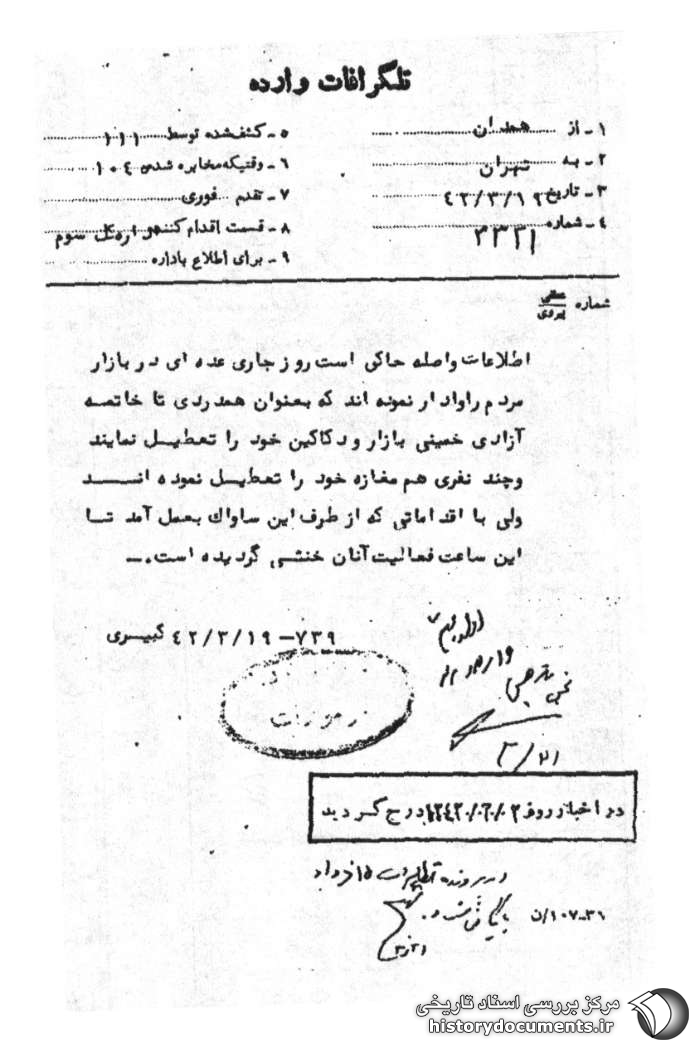 تلگرافات وارده
۱ - از همدان
۲ - به تهران
۳ - تاریخ ۴۲/۳/۱۹
۴ - شماره ۳۳۲۱
۵ - کشف شده توسط ۱۱۱
۶ - وقتیکه مخابره شده ۱۰۴۰
۷ - تقدم فوری
۸ - قسمت اقدام کننده اداره کل سوم
۹ - برای اطلاع باداره
شماره
اطلاعات واصله حاکی است روز جاری عده ای در بازار
مردم را وادار نموده اند که بعنوان همدردی تا خاتمه
آزادی خمینی بازار و دکاکین خود را تعطیل نمایند
و چند نفری هم مغازه خود را تعطیل نموده انــد
ولی با اقداماتی که از طرف این ساواک بعمل آمد تـا
این ساعت فعالیت آنان خنثی گردیده است.ــ
۷۳۹-۴۲/۳/۱۹ کبیـری
رموزات
۳/۲۱
در اخبار روز درج گردید
در پرونده تظاهرات ۱۵ خرداد
بایگانی شود.
۱۰۷-۳۱/ن
مرکز بررسی اسناد تاریخی
historydocuments.ir